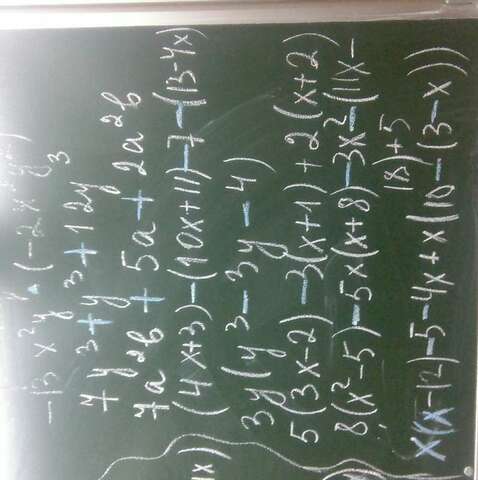 -13x²y · (-2x
7y³ + y³ + 12y³
7a²b + 5a + 2a²b
(4x+3) - (10x+11) - 7 - (13-4x)
3y(y³ - 3y - 4)
5(3x-2) - 3(x+1) + 2(x+2)
8(x²-5) - 5x(x+8) - 3x²(11x-
18) + 5
x(x-12) - 5 - 4x + x(10 - (3-x))